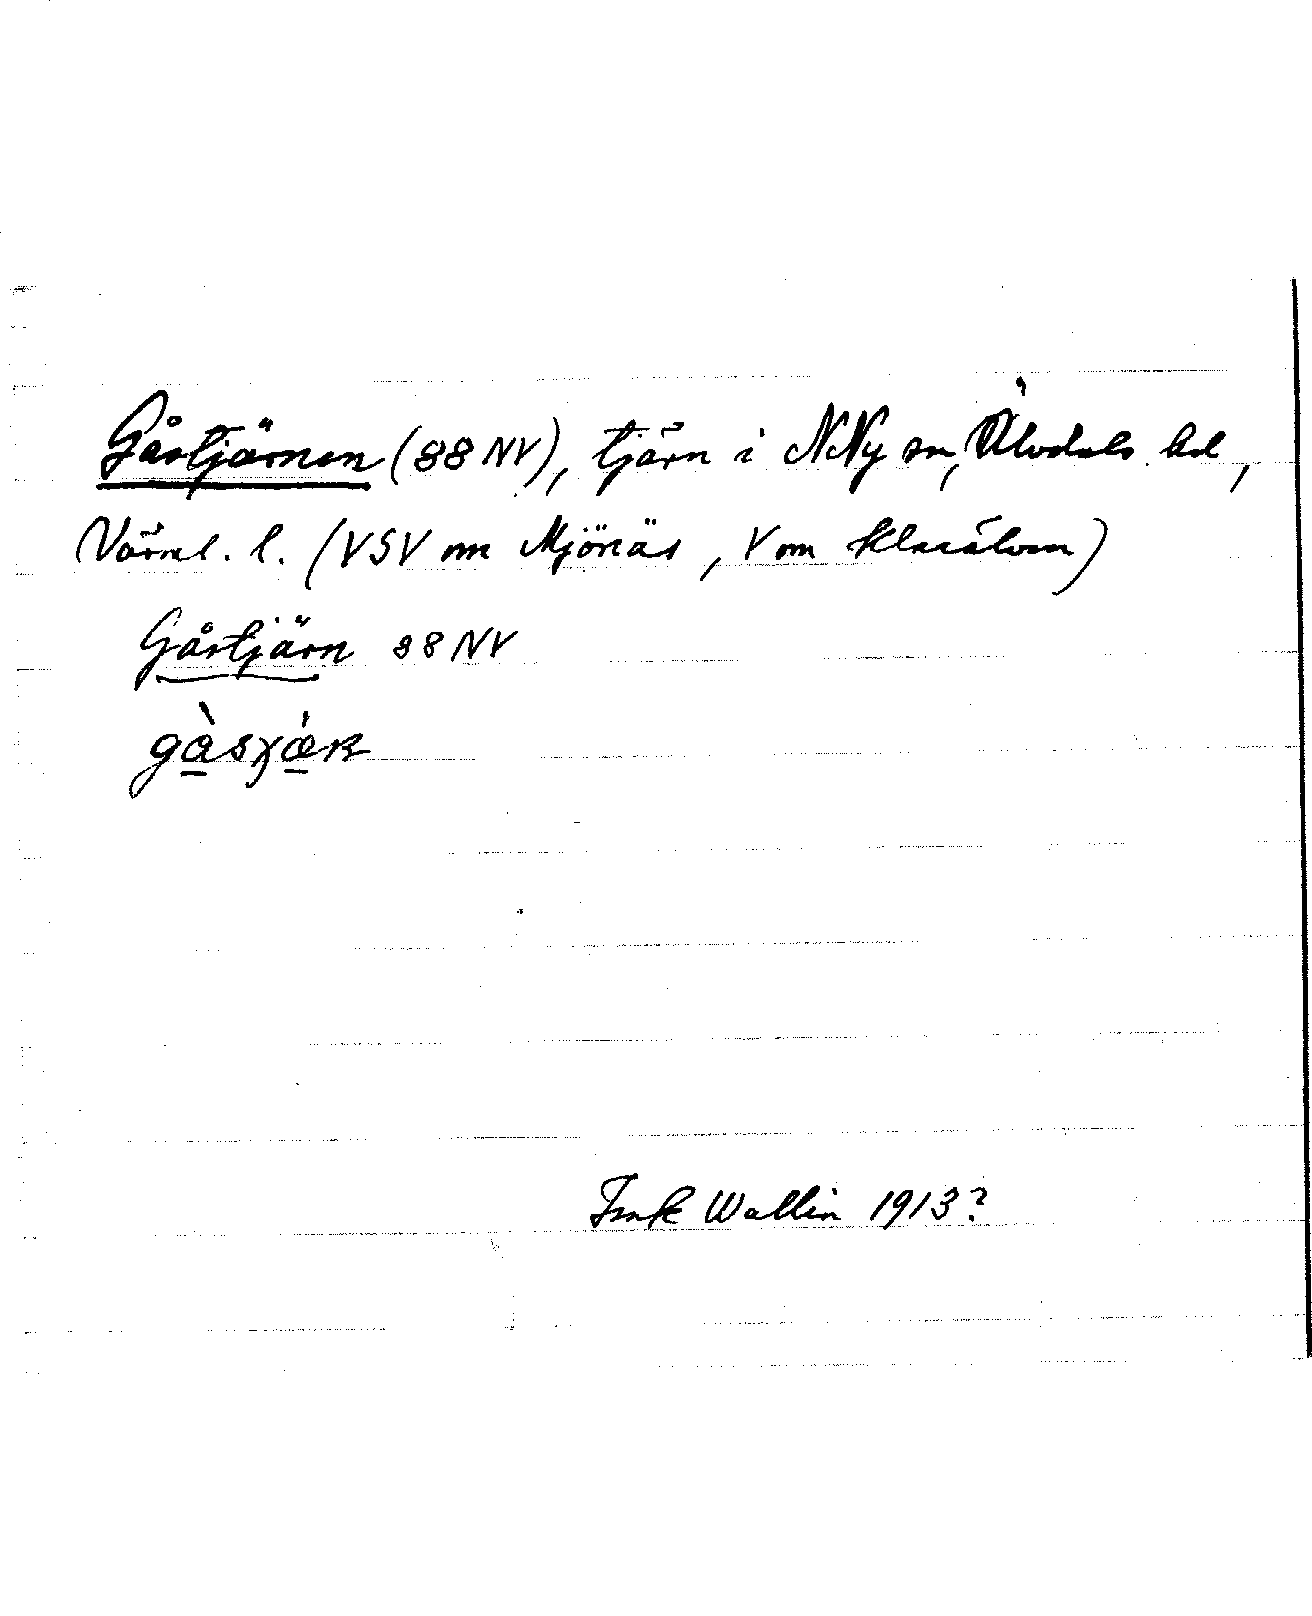 Gåstjärnen (88 NV), tjärn i N.Ny sn, Älvdals hd,
Värml. l. (VSV om Mjönäs, V om Klarälven)
Gåstjärn 88 NV
Fredr. Wallin 1913?